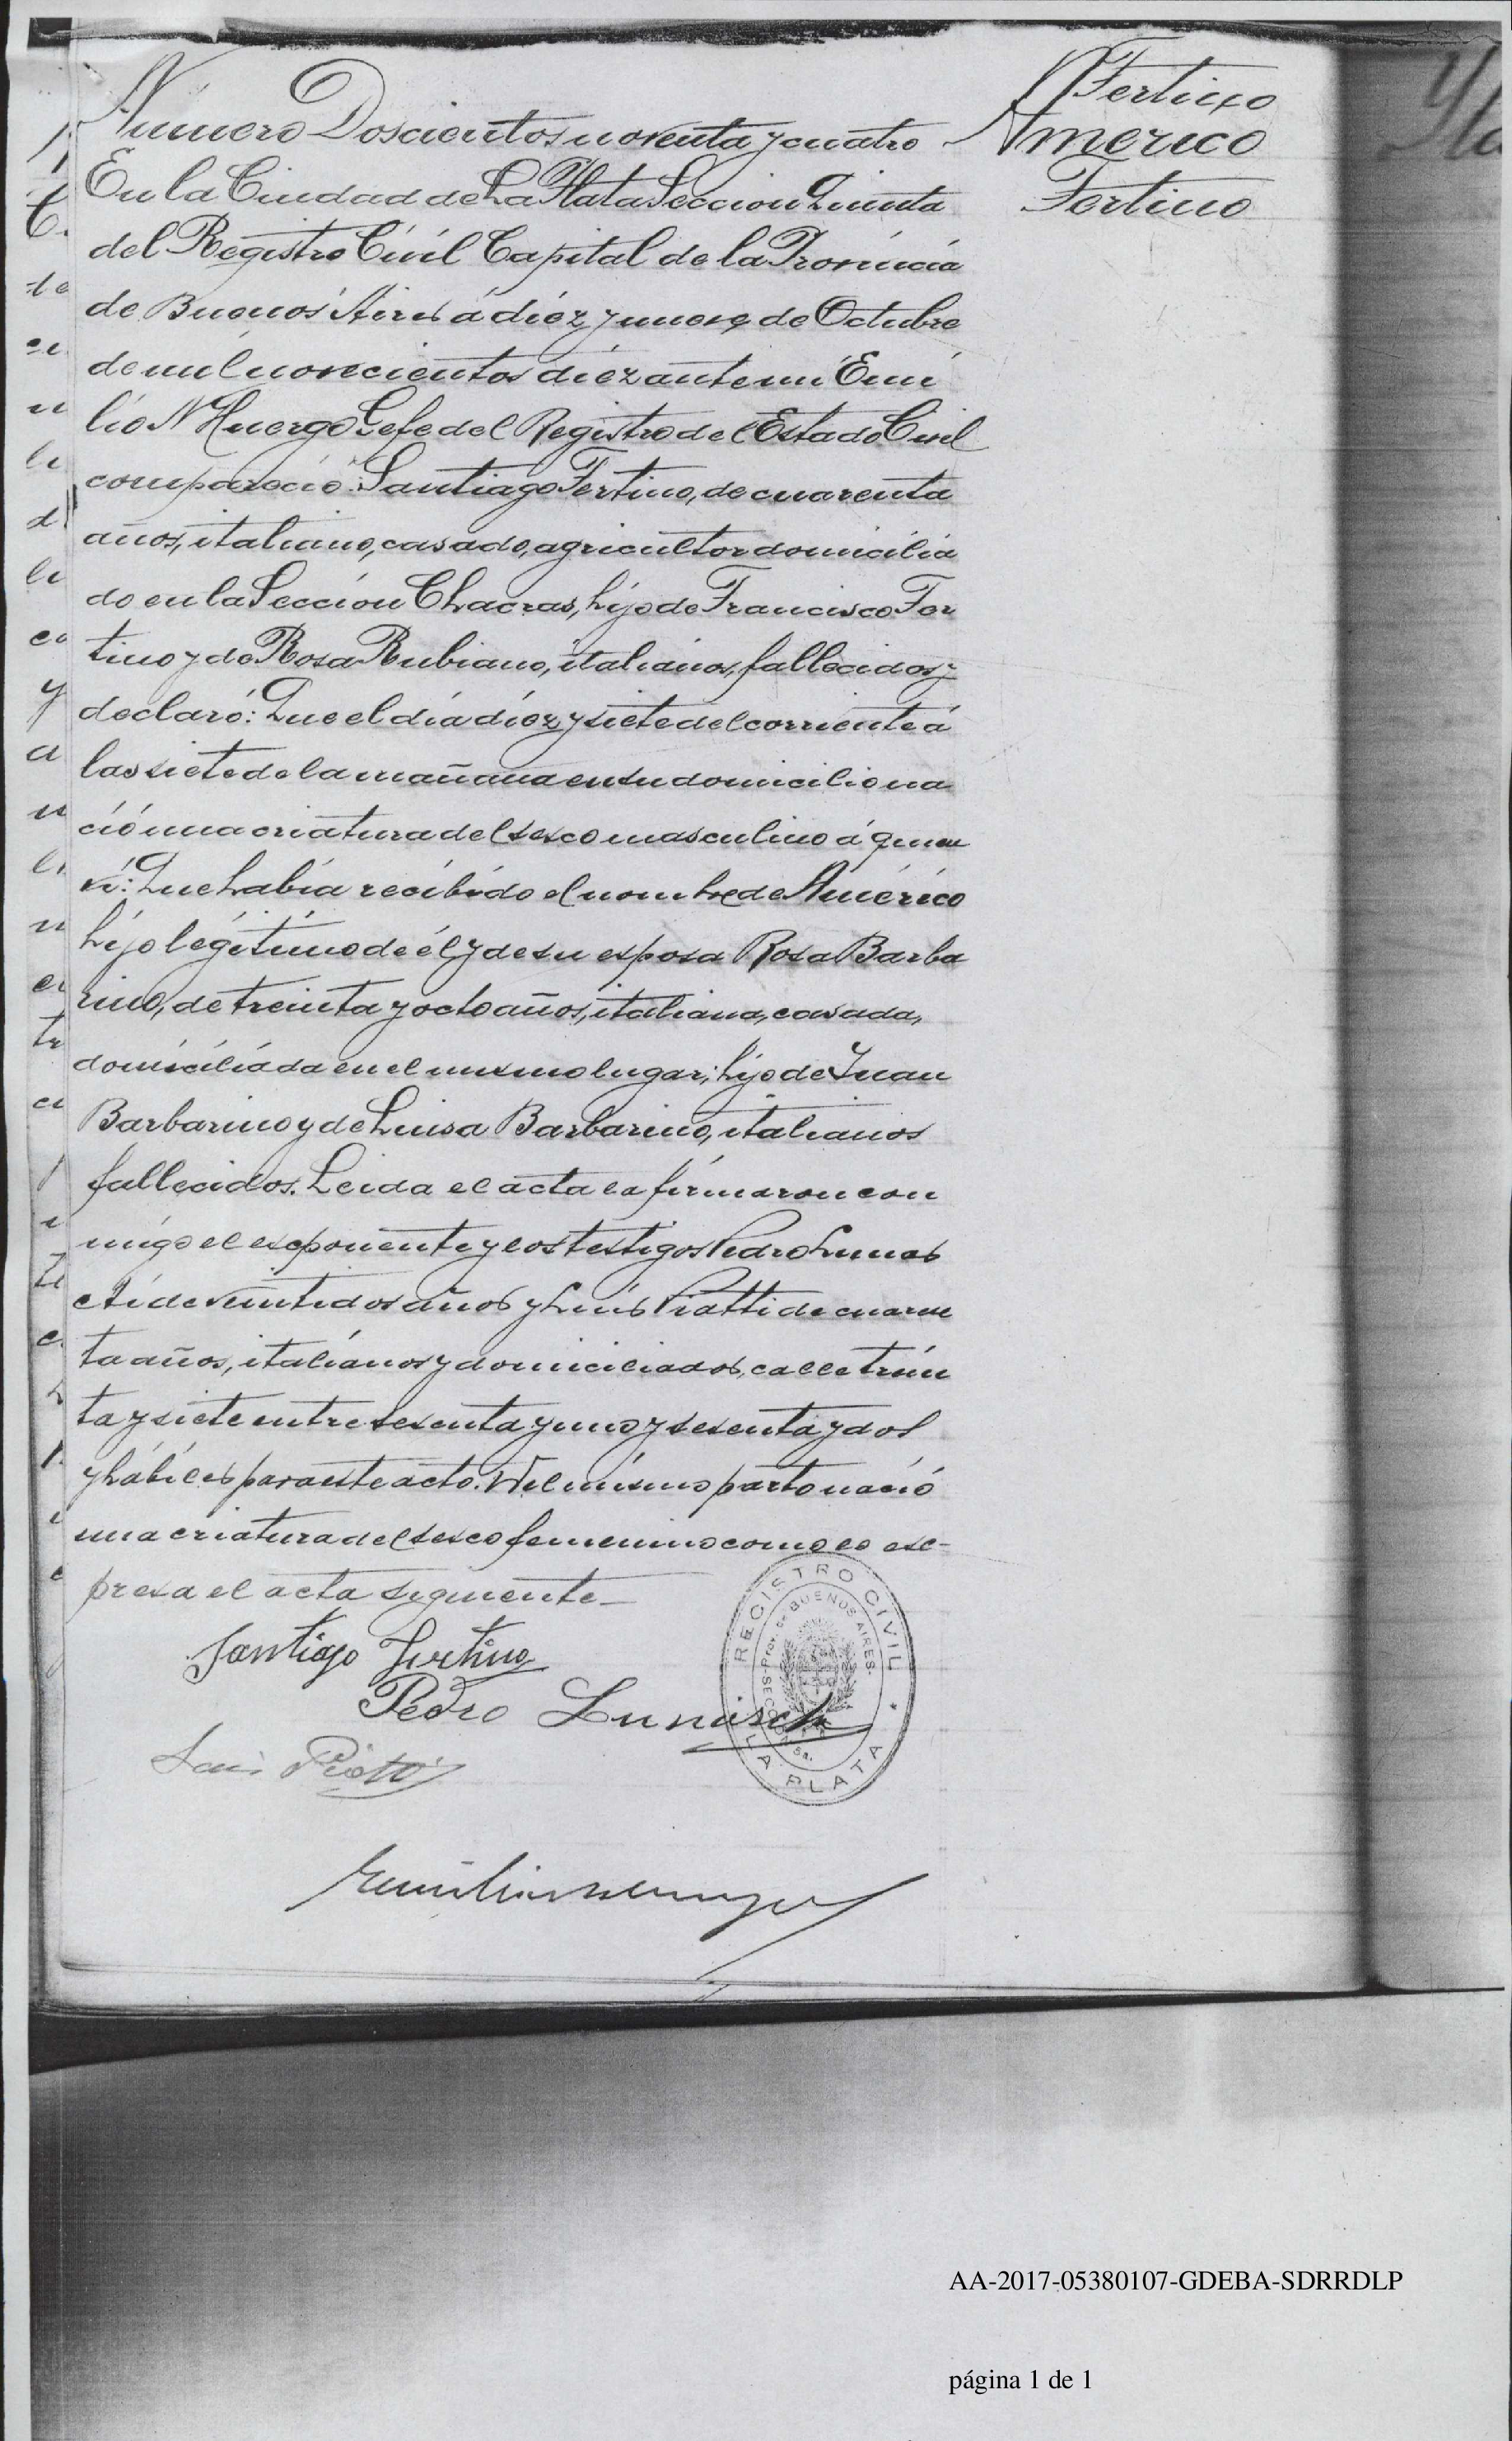 Fertino
Americo
Fertino
Número Doscientos noventa y cuatro
En la Ciudad de La Plata Seccion Quinta
del Registro Civil Capital de la Provincia
de Buenos Aires á diéz y nueve de Octubre
de mil novecientos diéz ante mi Emi
lio N Huergo Gefe del Registro del Estado Civil
compareció: Santiago Fertino, de cuarenta
años, italiano, casado, agricultor domicilia
do en la Sección Chacras, hijo de Francisco Fer
tino y de Rosa Rubiano, italianos, fallecidos y
declaró: Que el día diéz y siete del corriente á
las siete de la mañana en su domicilio na
ció una criatura del sexo masculino á quien
ví: Que había recibido el nombre de Américo
hijo legítimo de él y de su esposa Rosa Barba
rino, de treinta y ocho años, italiana, casada,
domiciliada en el mismo lugar; hijo de Juan
Barbarino y de Luisa Barbarino, italianos
fallecidos. Leida el acta la firmaron con
migo el exponente y los testigos Pedro
de veintidos años y Luis Piatti de cuaren
ta años, italianos y domiciliados, calle trein
ta y siete entre sesenta y uno y sesenta y dos
y hábiles para este acto. Del mismo parto nació
una criatura del sexo femenino como lo ex-
presa el acta siguiente
Santiago Fertino
Pedro
Luis Piatti
REGISTRO CIVIL
LA PLATA
Prov. de BUENOS AIRES
SECCION 5a.
AA-2017-05380107-GDEBA-SDRRDLP
página 1 de 1